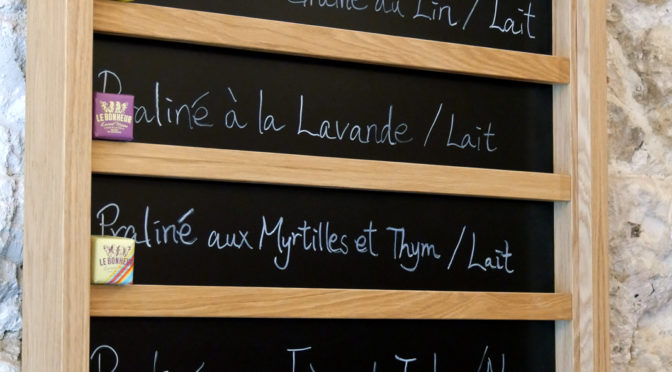 au Lin / Lait
Praliné à la Lavande / Lait
LE BONHEUR
Praliné aux Myrtilles et Thym / Lait
LE BONHEUR